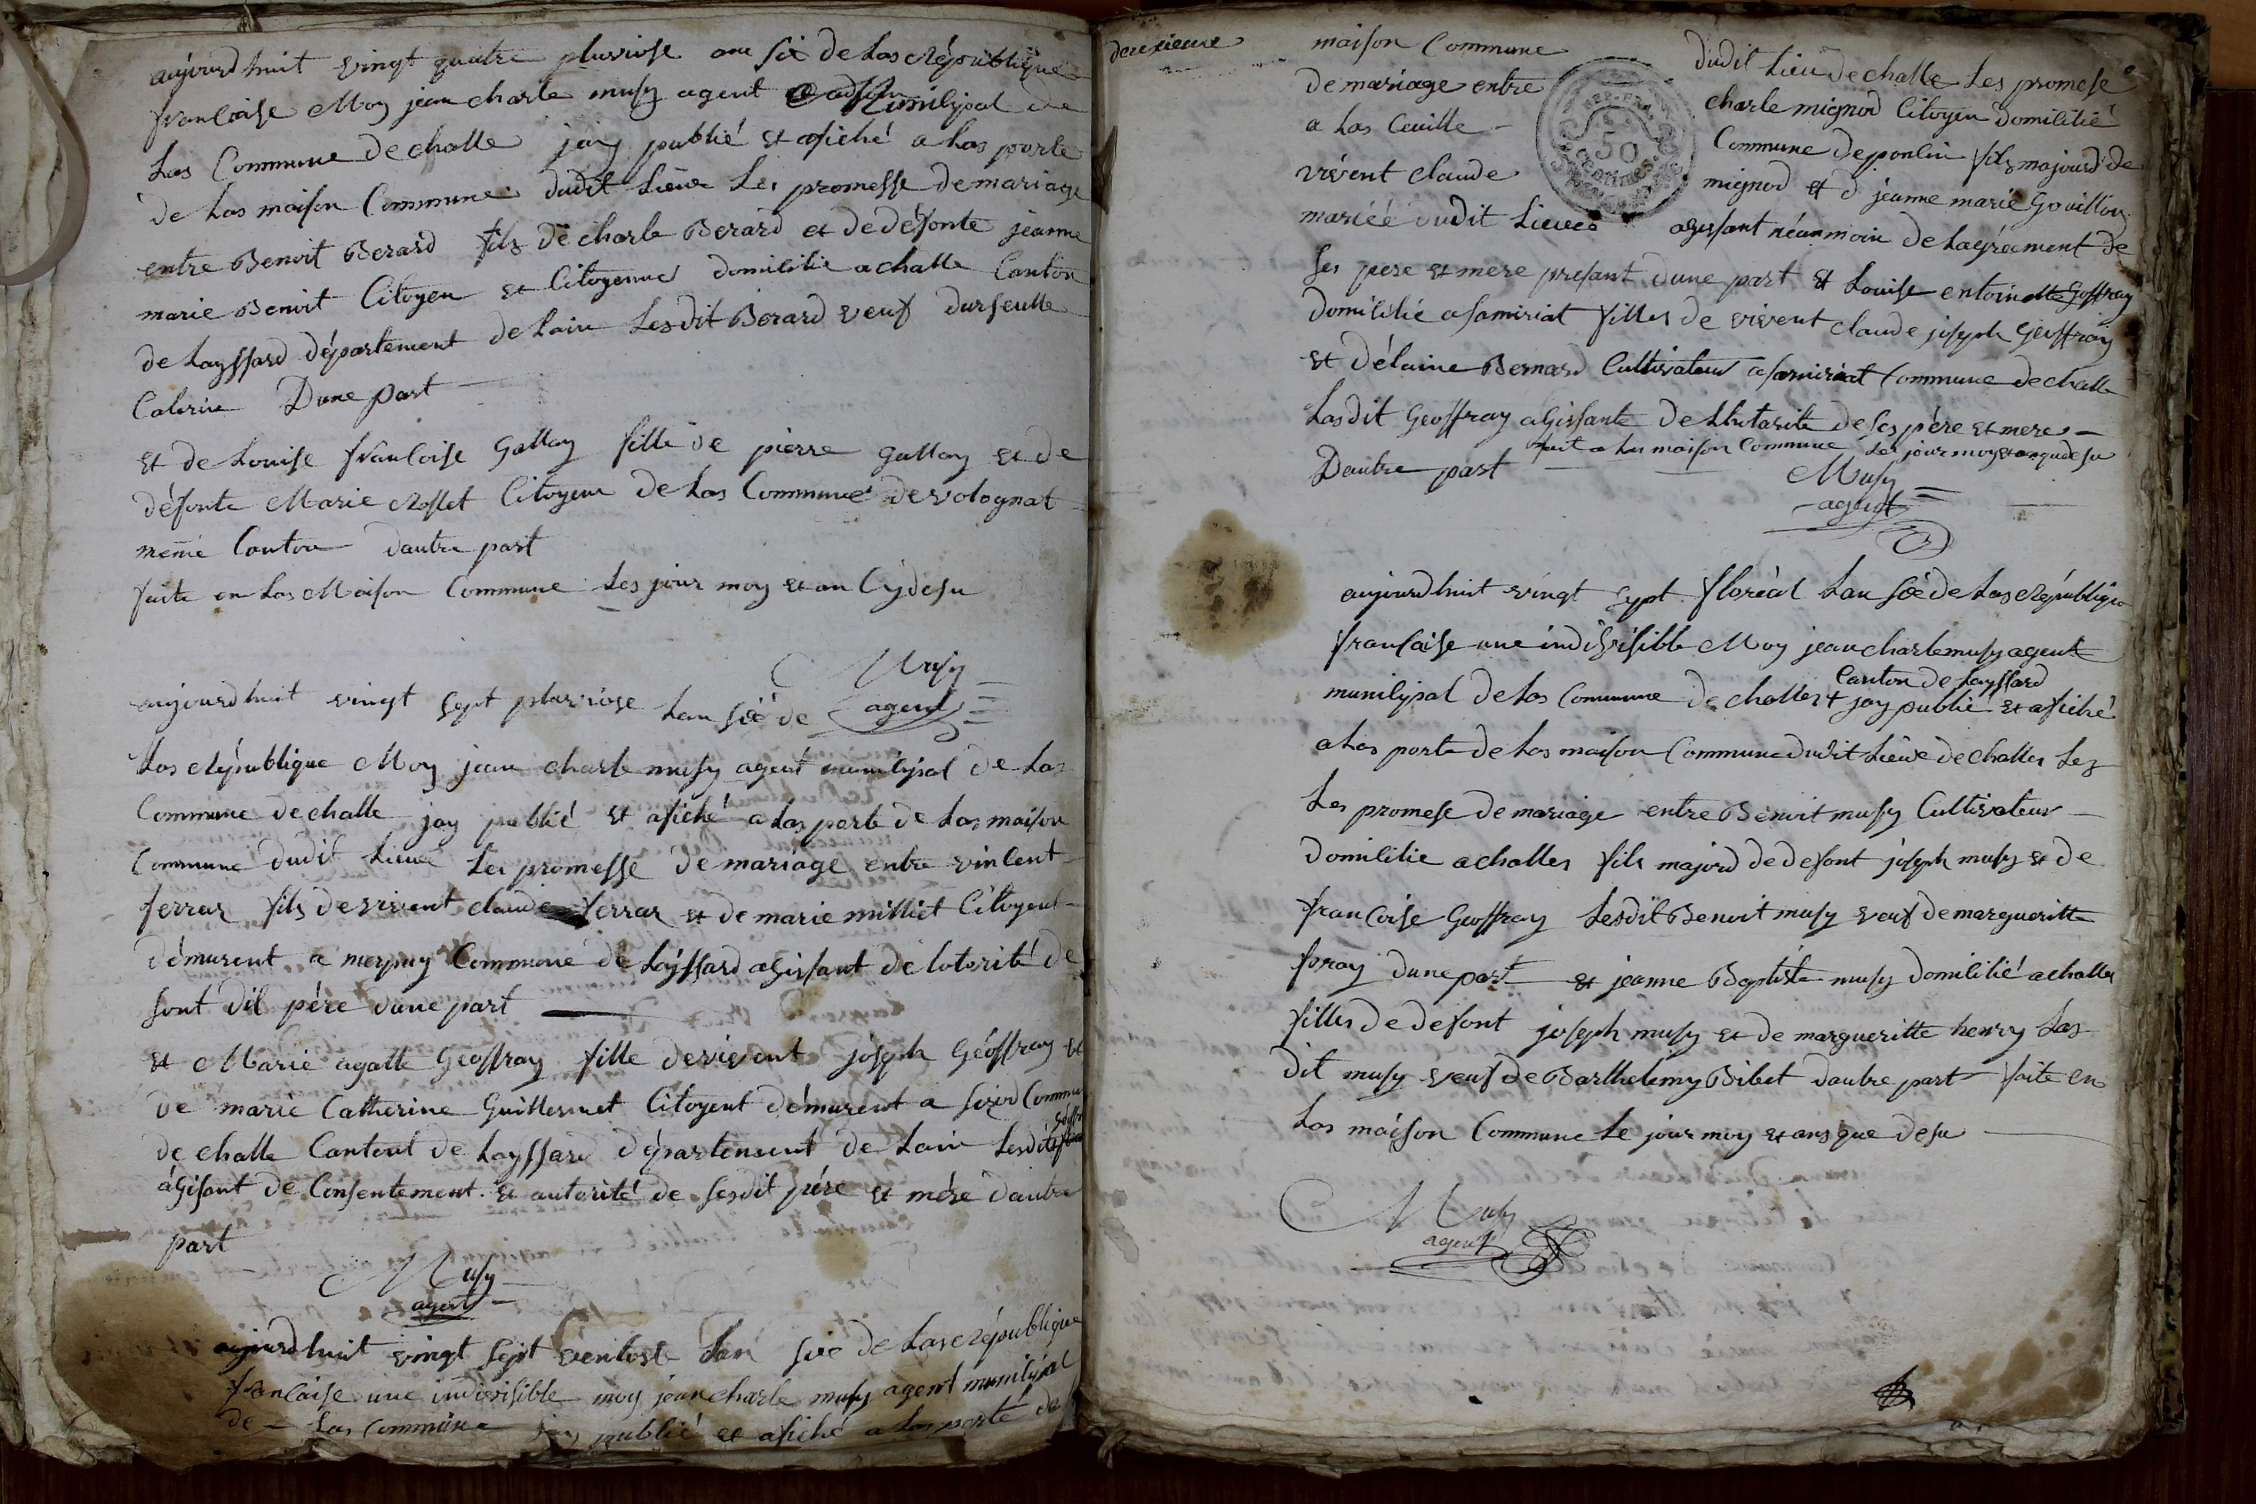 aujourd huit vingt quatre pluviose an sié de Las République
francaise Moy jean charle musy agent municipal de
Las Commune de challe jay publié et afiché a Las porte
de Las maison Commune dudit Lieue Les promesse de mariage
entre Benoit Berard fils de charle Berard et de défonte jeanne
marie Benoit Citoyen et Citoyenne domicilie a challe Canton
de Layssard département de Lain Lesdit Berard veuf
Dune part
et de Louise francoise Gallay fille de pierre gallay et de
défonte Marie Citoyen de Las Commune de volognat
meme Canton dautre part
faite en Las Maison Commune Les jour moy et an Cydesu
Musy
agent
aujourdhuit vingt sept pluviose Lan sié de
Las République Moy jean charle musy agent municipal de Las
Commune de challe jay publié et afiché a Las porte de Las maison
Commune dudit Lieue Les promesse de mariage entre vincent
ferrar fils de vivent claude ferrar et de marie milliet Citoyent
démurent a Commune de Layssard agissant de lotorité de
sont dit pére dune part
et Marie agatte Geoffray fille de vivent joseph Géoffray et
de marie Catherine Guillermet Citoyent démurent a Commu
de challe Cantont de Layssard département de Lain Lesdite
agisant de Consentement et autorité de sesdit pére et mére dautre
part
Musy
agent
aujourdhuit vingt sept ventose Lan sié de Las République
francaise une indivisible moy jean charle musy agent municipal
de Las Commune jay publié et afiché a Las porté de
deuxieme
maison Commune dudit Lieu de challe Les promese
de mariage entre charle mignod Citoyen domicilié
a Las Cueille Commune de poncin fils majourd de
vivent claude mignod et d jeanne marie Gouillon
mariéé dudit Lieuee agissant néanmoin de Lagréement de
ses pere et mere presant dune part et Louise entoinette Geoffray
domicilié a samiriat filles de vivent claude joseph Geoffray
et délaine Bernard Cultivateur a samiriat Commune de challe
Lasdit Geoffray agissante de Lhotarité de ses pére et mere
Dautre part fait a Las maison Commune Les jour moy et an que desu
Musy
agent
aujourdhuit vingt sept floréal Lan sié de Las République
francaise une indivisible Moy jean charle musy agent
Canton de Layssard
municipal de Las Commune de challes + jay publié et afiché
a Las porte de Las maison Commune dudit Lieue de challes Les
Les promese de mariage entre Benoit musy Cultivateur
domicilie a challes fils majord de defont joseph musy et de
francoise Geoffray Lesdit Benoit musy veuf de margueritte
foray dune part et jeanne Baptiste musy domicilié a challes
filles de defont joseph musy et de margueritte henry Las
dit musy veuf de Barthelemy Bibet dautre part faite en
Las maison Commune Le jour moy et ans que desu
Musy
agent
REP. FRA.
50
CENTIMES.